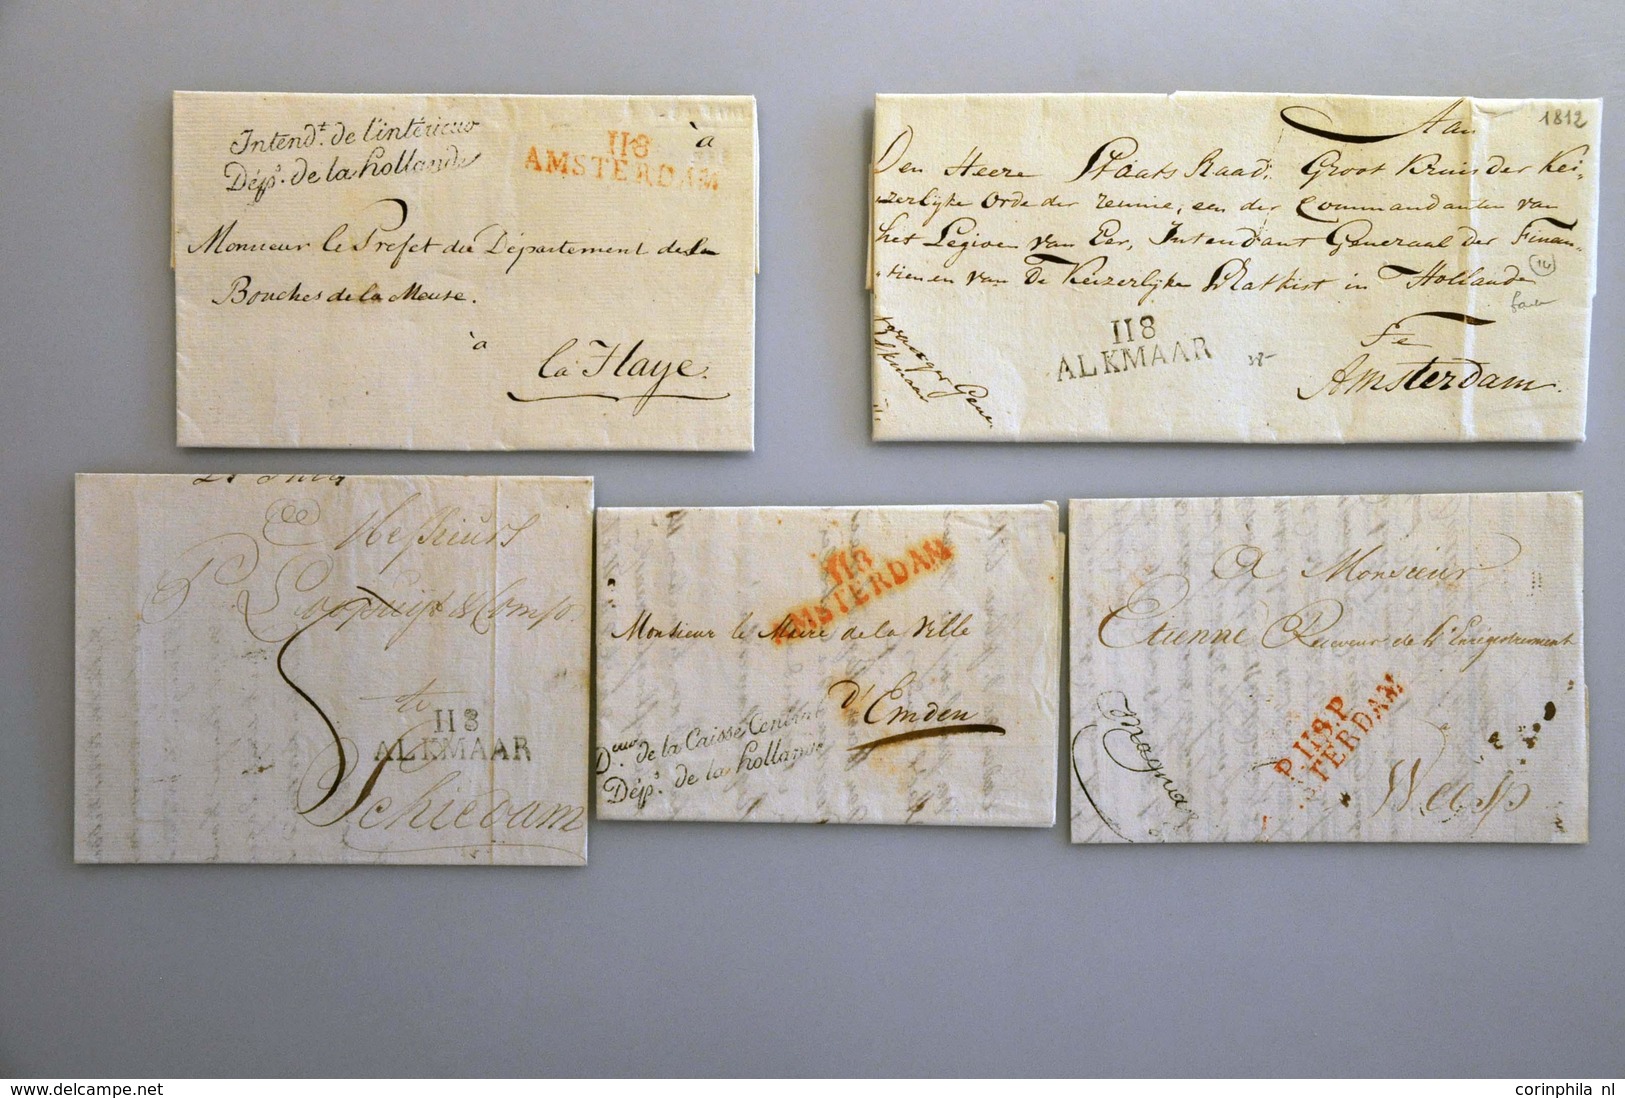 Intend.t de l'intérieur
Dép.t de la hollande
118
AMSTERDAM
à
Monsieur le Prefet du Département de la
Bouches de la Meuse.
à
la Haye.
1812
Aan
Den Heere Staats Raad, Groot Kruis der Kei-
zerlijke Orde der reunie, een der Commandanten van
het Legioen van Eer, Intendant Generaal der Finan-
tien en van De Keizerlijke Schatkist in Hollande
Te
Amsterdam.
118
ALKMAAR
Messieurs
& Comp.
te
Schiedam
118
ALKMAAR
118
AMSTERDAM
Monsieur le Maire de la Ville
d'Emden
de la Caisse Central
Dép.t de la hollande
A Monsieur
Etienne Receveur de l'Enregistrement
à
Weesp
P.118.P
STERDAM
www.delcampe.net
corinphila nl